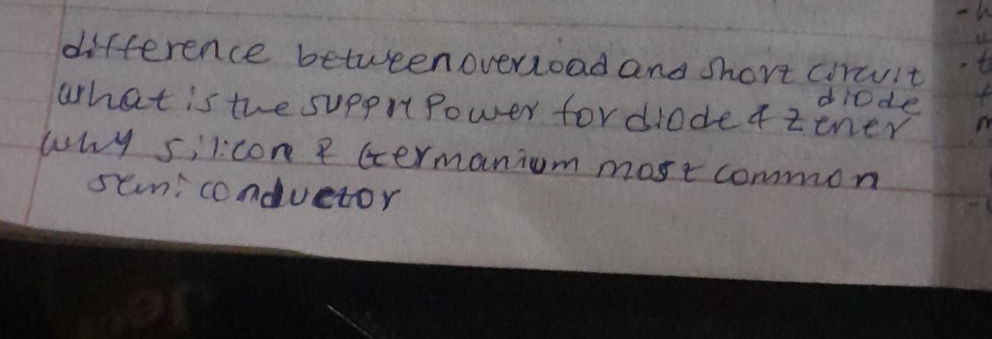 difference between overload and short circuit
what is the supply Power for diode & zener diode
why silicon & Germanium most common
semiconductor